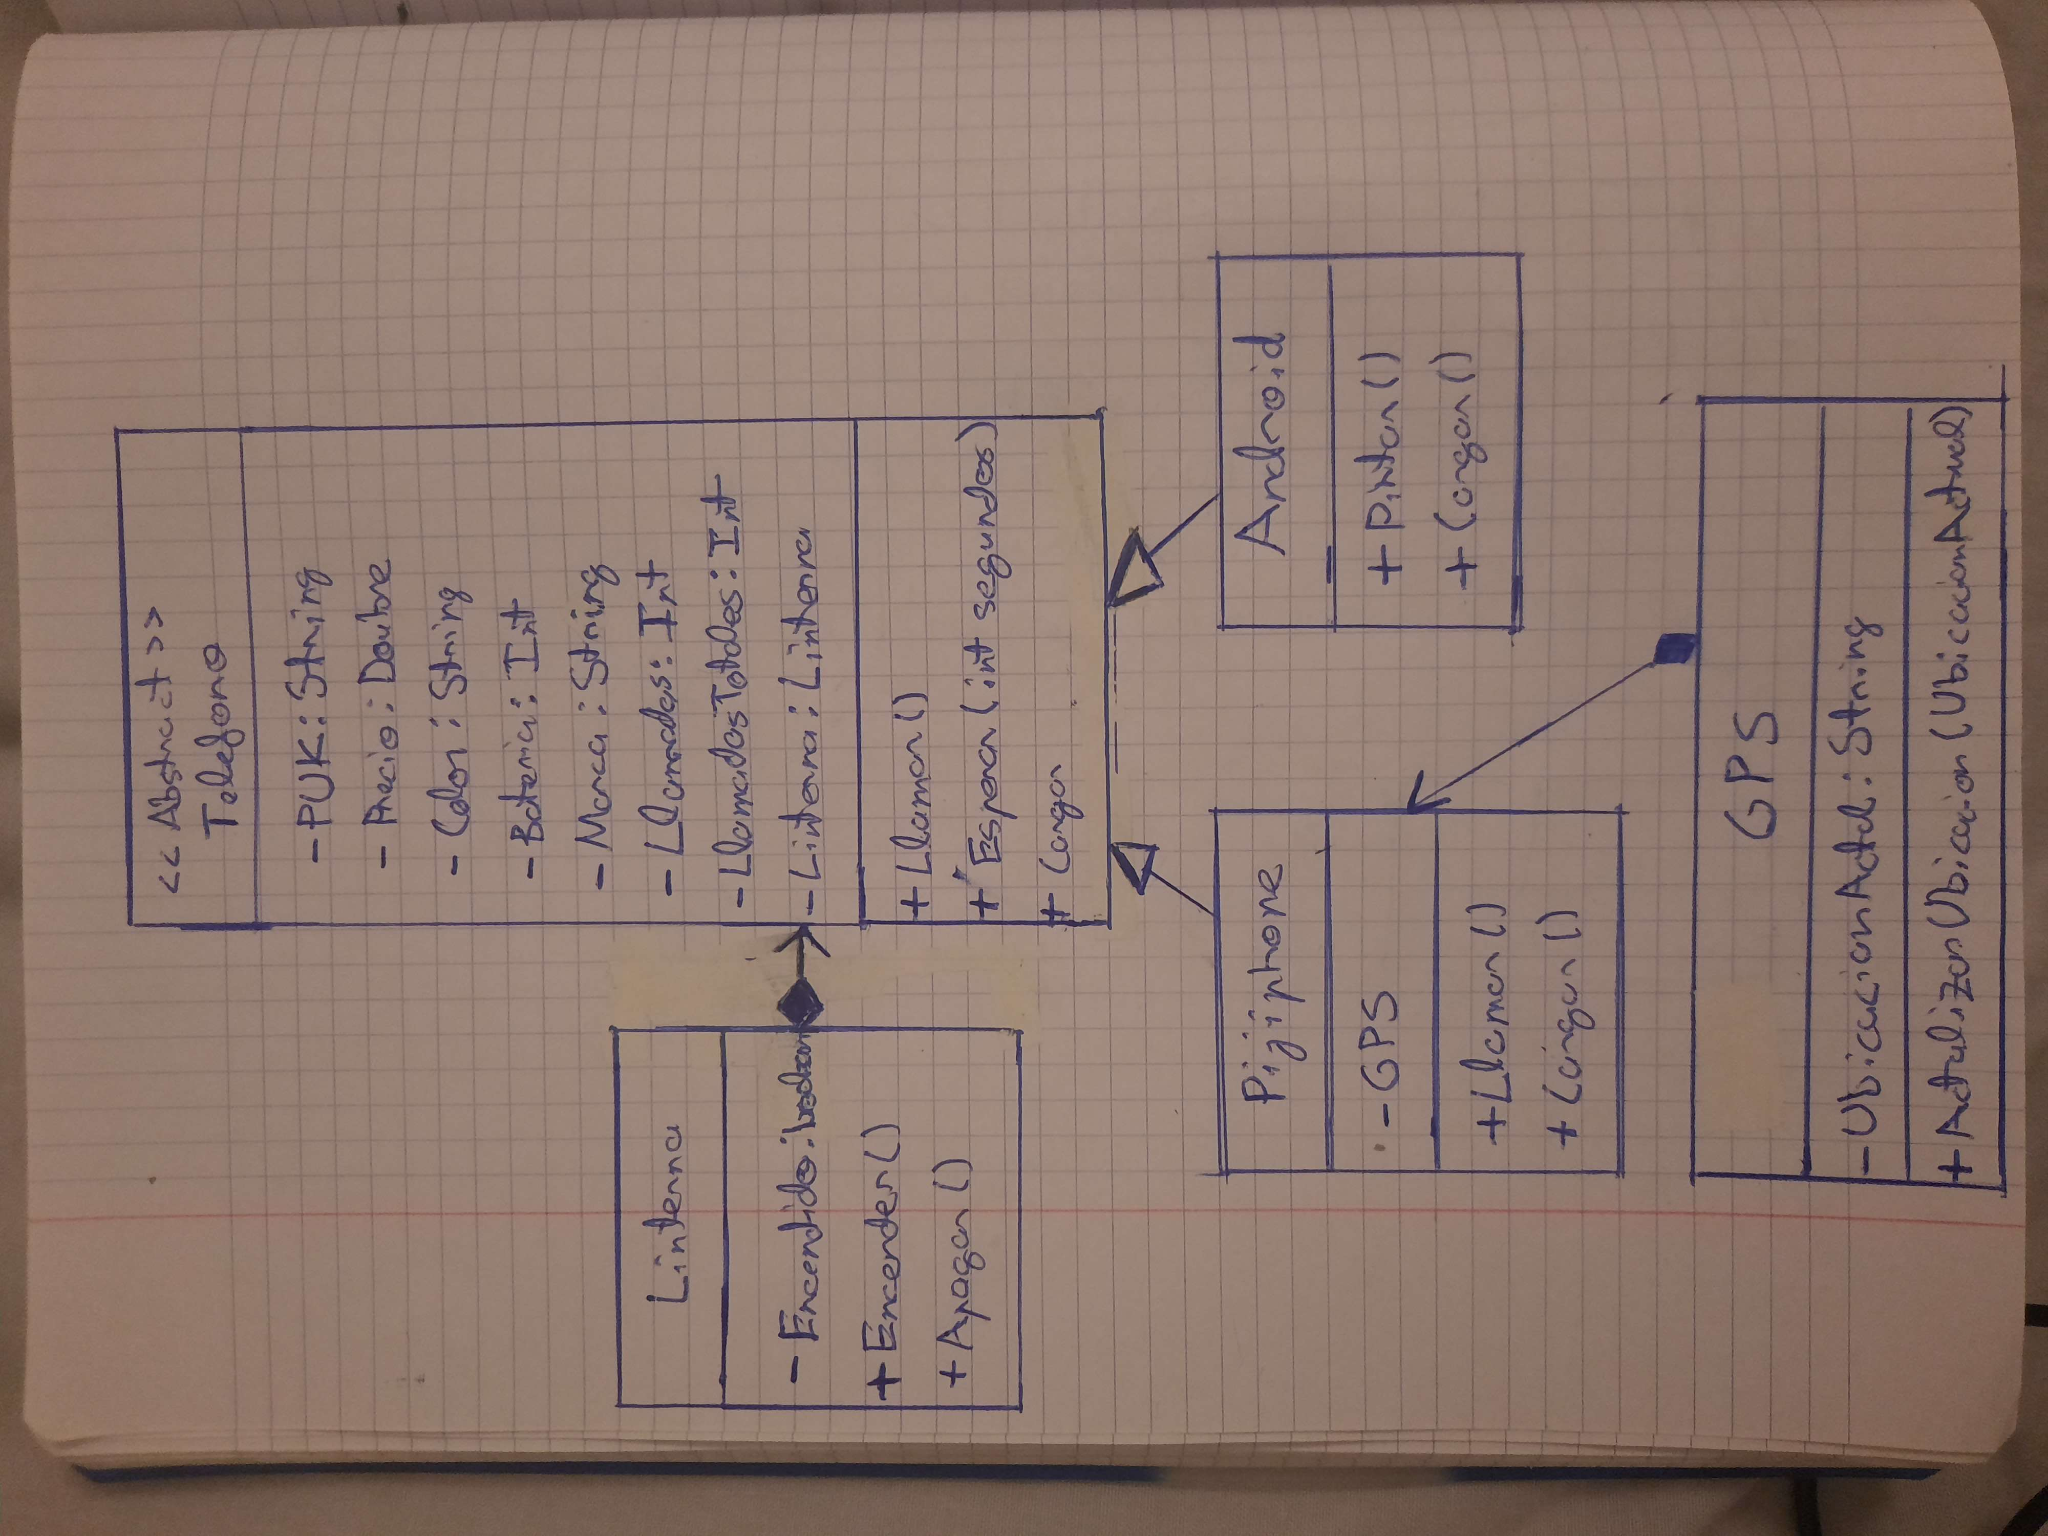 << Abstract >>
Telefono
- PUK : String
- Precio : Doubre
- Color : String
- Bateria : Int
- Marca : String
- Llamadas : Int
- LlamadasTotales : Int
- Linterna : Linterna
+ Llamar ()
+ Esperar ( int segundos)
+ Cargar
Linterna
- Encendido :
+ Encender ()
+ Apagar ()
Pijiphone
- GPS
+ Llamar ()
+ Cargar ()
Android
+ Pintar ()
+ Cargar ()
GPS
- UbicacionActal : String
+ ActalizarUbicacion (UbicacionActual)